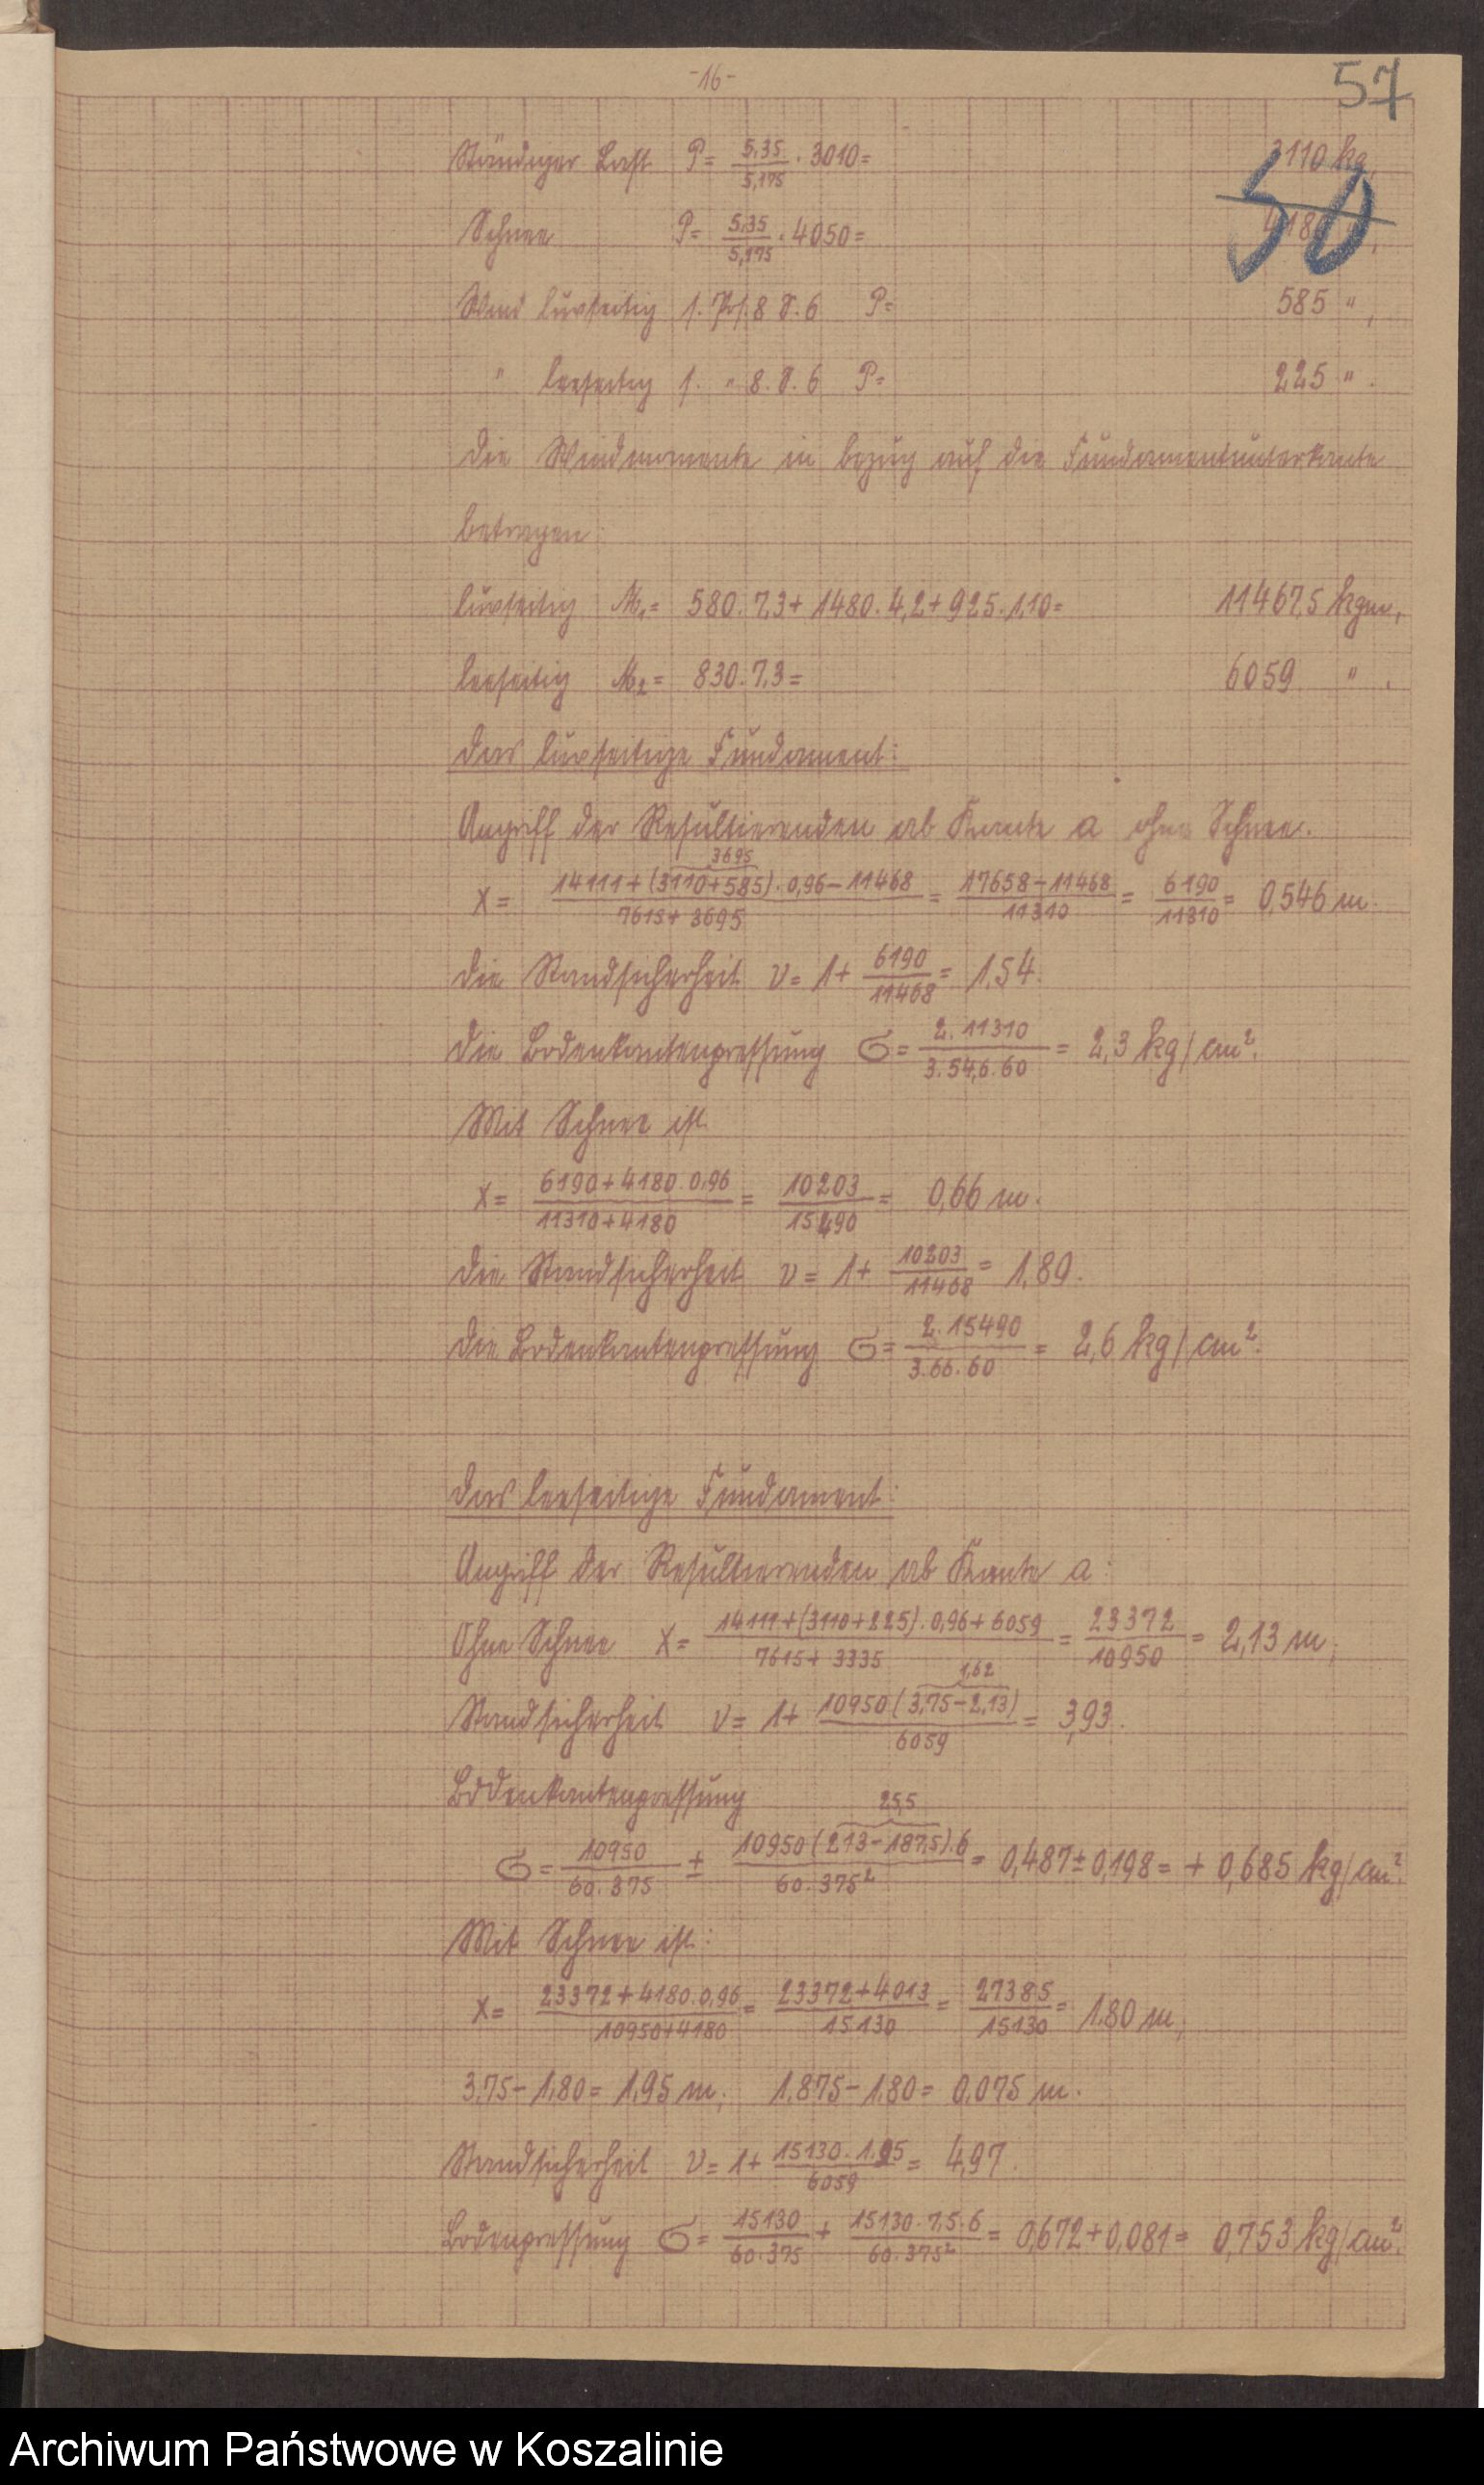 -16-
57
50
Ständiger Last P= 5,35/5,175 · 3010= 3110 kg,
Schnee P= 5,35/5,175 · 4050= 4180 ",
Wind luvseitig s. Pos. 8 S. 6 P= 585 ",
" leeseitig s. " 8. S. 6 P= 225 ".
Die Windmomente in bezug auf die Fundamentunterkante
betragen:
luvseitig M₁= 580·7,3+1480·4,2+925·1,10= 11467,5 kgm,
leeseitig M₂= 830·7,3= 6059 ".
Das luvseitige Fundament:
Angriff der Resultierenden ab Kante a ohne Schnee.
3695
x= (14111+(3110+585)·0,96-11468)/(7615+3695) = (17658-11468)/11310 = 6190/11310 = 0,546 m.
Die Standsicherheit ν= 1+ 6190/11468 = 1,54.
Die Bodenkantenpressung σ= 2·11310/3·54,6·60 = 2,3 kg/cm².
Mit Schnee ist
x= (6190+4180·0,96)/(11310+4180) = 10203/15490 = 0,66 m.
Die Standsicherheit ν= 1+ 10203/11468 = 1,89.
Die Bodenkantenpressung σ= 2·15490/3·66·60 = 2,6 kg/cm².
Das leeseitige Fundament:
Angriff der Resultierenden ab Kante a:
Ohne Schnee x= (14111+(3110+225)·0,96+6059)/(7615+3335) = 23372/10950 = 2,13 m,
1,62
Standsicherheit ν= 1+ 10950(3,75-2,13)/6059 = 3,93.
Bodenkantenpressung
25,5
σ= 10950/60·375 ± 10950(213-187,5)·6/60·375² = 0,487±0,198= + 0,685 kg/cm².
Mit Schnee ist:
x= (23372+4180·0,96)/(10950+4180) = (23372+4013)/15130 = 27385/15130 = 1,80 m,
3,75-1,80= 1,95 m, 1,875-1,80= 0,075 m.
Standsicherheit ν= 1+ 15130·1,95/6059 = 4,97.
Bodenpressung σ= 15130/60·375 + 15130·7,5·6/60·375² = 0,672+0,081= 0,753 kg/cm².
Archiwum Państwowe w Koszalinie